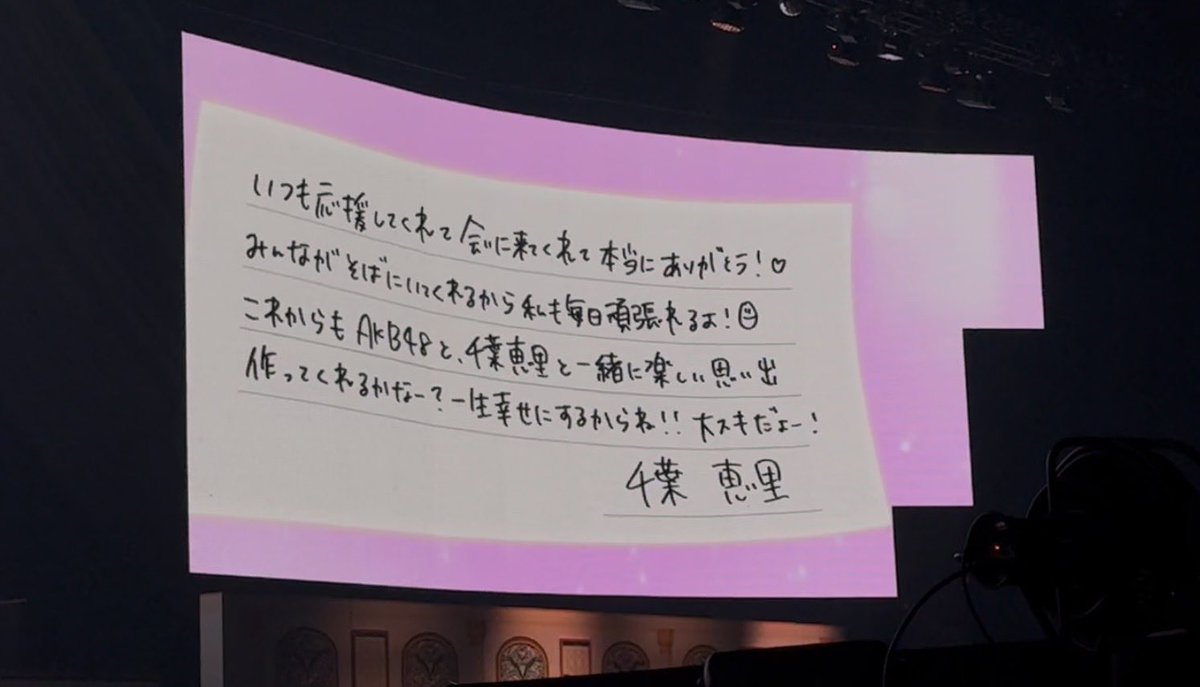 いつも応援してくれて会いに来てくれて本当にありがとう！♡
みんながそばにいてくれるから私も毎日頑張れるよ！☺
これからもAKB48と、千葉恵里と一緒に楽しい思い出
作ってくれるかなー？一生幸せにするからね！！大スキだよー！
千葉 恵里